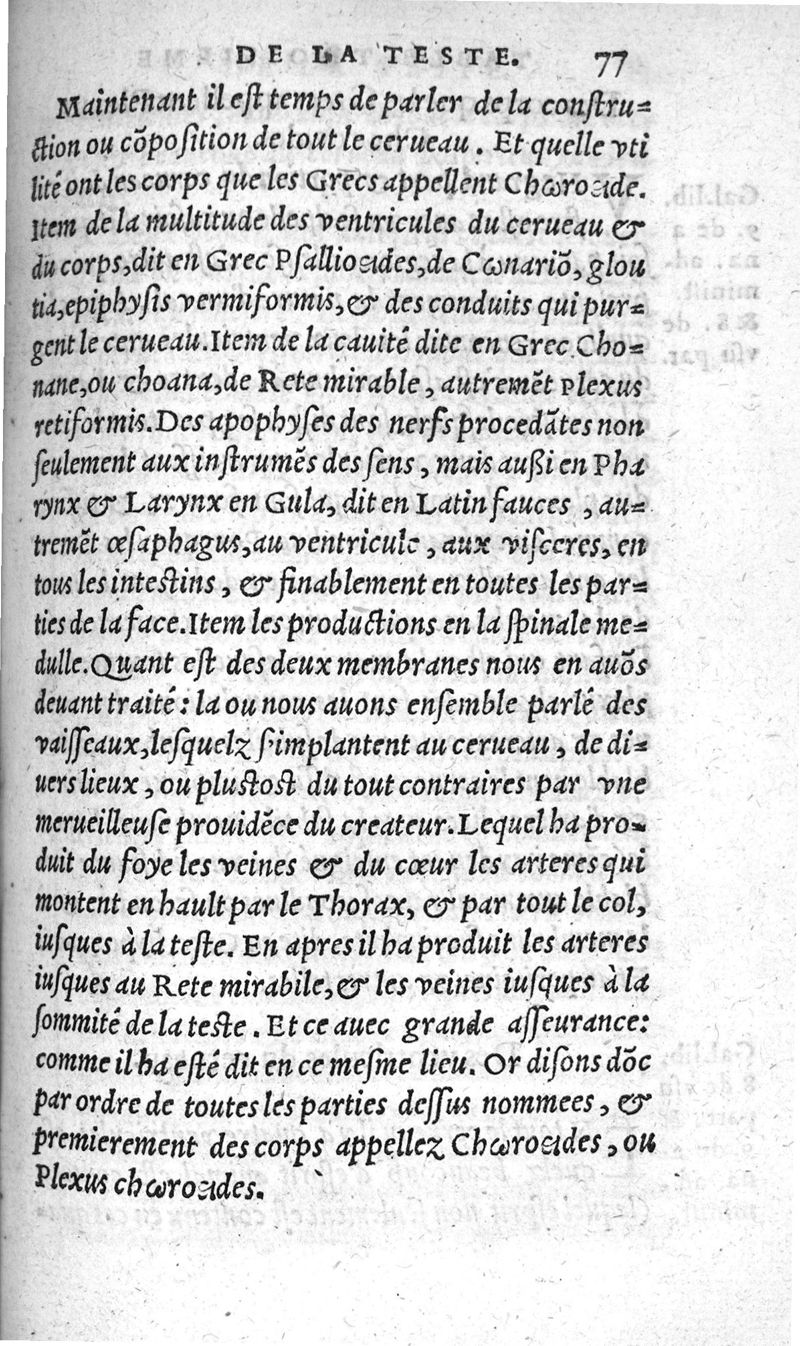 DE LA TESTE. 77
Maintenant il est temps de parler de la constru=
ction ou cōposition de tout le cerueau. Et quelle vti
lité ont les corps que les Grecs appellent Chωroeide.
Item de la multitude des ventricules du cerueau &
du corps, dit en Grec Psallioeides, de Cωnariō, glou
tia, epiphysis vermiformis, & des conduits qui pur=
gent le cerueau. Item de la cauité dite en Grec Cho=
nane, ou choana, de Rete mirable, autremēt Plexus
retiformis. Des apophyses des nerfs procedātes non
seulement aux instrumēs des sens, mais aussi en Pha
rynx & Larynx en Gula, dit en Latin fauces, au=
tremēt œsaphagus, au ventricule, aux visceres, en
tous les intestins, & finablement en toutes les par=
ties de la face. Item les productions en la spinale me=
dulle. Quant est des deux membranes nous en auōs
deuant traité: la ou nous auons ensemble parlé des
vaisseaux, lesquelz s'implantent au cerueau, de di=
uers lieux, ou plustost du tout contraires par vne
merueilleuse prouidēce du createur. Lequel ha pro=
duit du foye les veines & du cœur les arteres qui
montent en hault par le Thorax, & par tout le col,
iusques à la teste. En apres il ha produit les arteres
iusques au Rete mirabile, & les veines iusques à la
sommité de la teste. Et ce auec grande asseurance:
comme il ha esté dit en ce mesme lieu. Or disons dōc
par ordre de toutes les parties dessus nommees, &
premierement des corps appellez Chωroeides, ou
Plexus chωroeides.